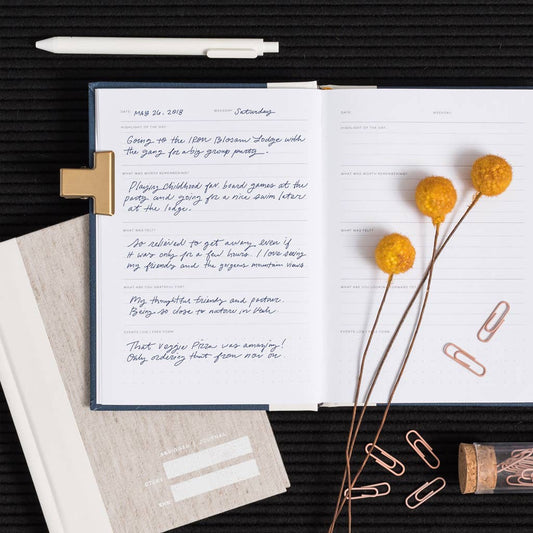 DATE: MAY 26, 2018 WEEKDAY: Saturday
HIGHLIGHT OF THE DAY:
Going to the Iron Blosam Lodge with
the gang for a big group party.
WHAT WAS WORTH REMEMBERING?
Playing childhood fav. board games at the
party and going for a nice swim later
at the lodge.
WHAT WAS FELT?
So relieved to get away even if
it was only for a few hours. I love seeing
my friends and the gorgeous mountain views
WHAT ARE YOU GRATEFUL FOR?
My thoughtful friends and
Being so close to nature in Utah
That veggie pizza was amazing!
Only ordering that from now on
DATE: WEEKDAY:
HIGHLIGHT OF THE DAY:
WHAT WAS WORTH REMEMBERING?
WHAT WAS FELT?
JOURNAL